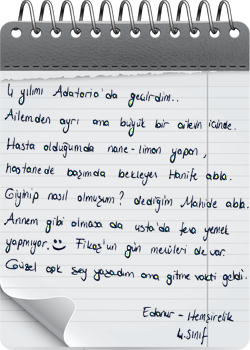 4 yılımı Adatorio'da geçirdim..
Ailemden ayrı ama büyük bir ailenin içinde.
Hasta olduğumda nane-limon yapan,
hastanede başımda bekleyen Hanife abla.
Giyinip nasıl olmuşum? dediğim Mahide abla.
Annem gibi olmasa da usta'da fena yemek
yapmıyor. Fikoş'un gün menüleri de var.
Güzel çok şey yaşadım ama gitme vakti geldi.
Edanur - Hemşirelik
4. Sınıf